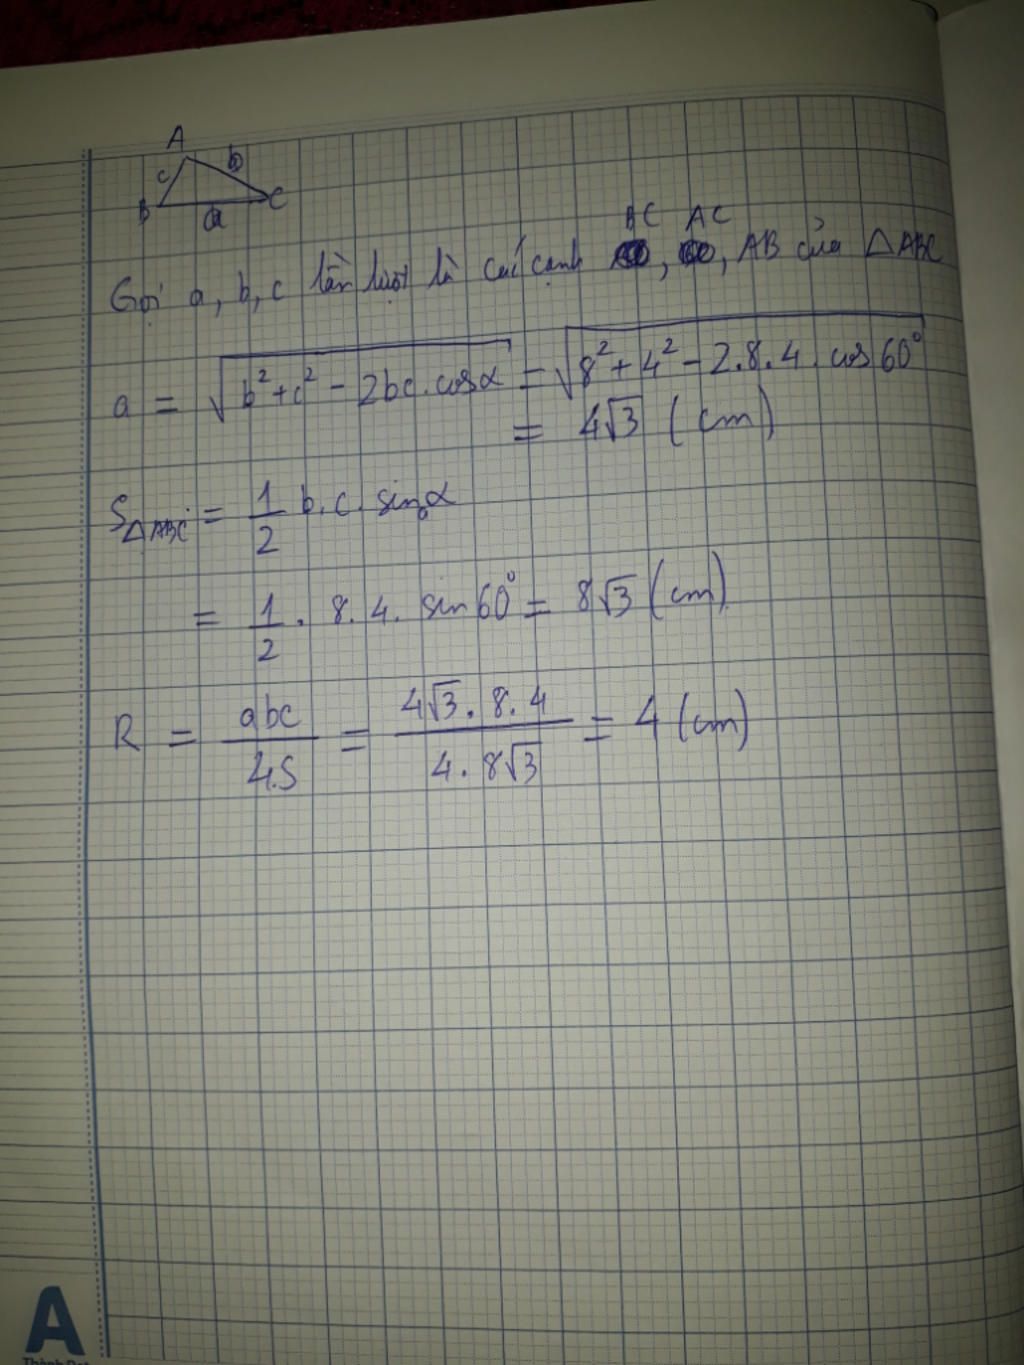 A
c b
B a C
BC AC
Gọi a, b, c lần lượt là các cạnh , , AB của △ABC
a = √(b² + c² − 2bc.cosα) = √(8² + 4² − 2.8.4.cos60°)
= 4√3 (cm)
S△ABC = 1/2 b.c.sinα
= 1/2 . 8.4. sin60° = 8√3 (cm)
R = abc/4S = 4√3.8.4/4.8√3 = 4 (cm)
A